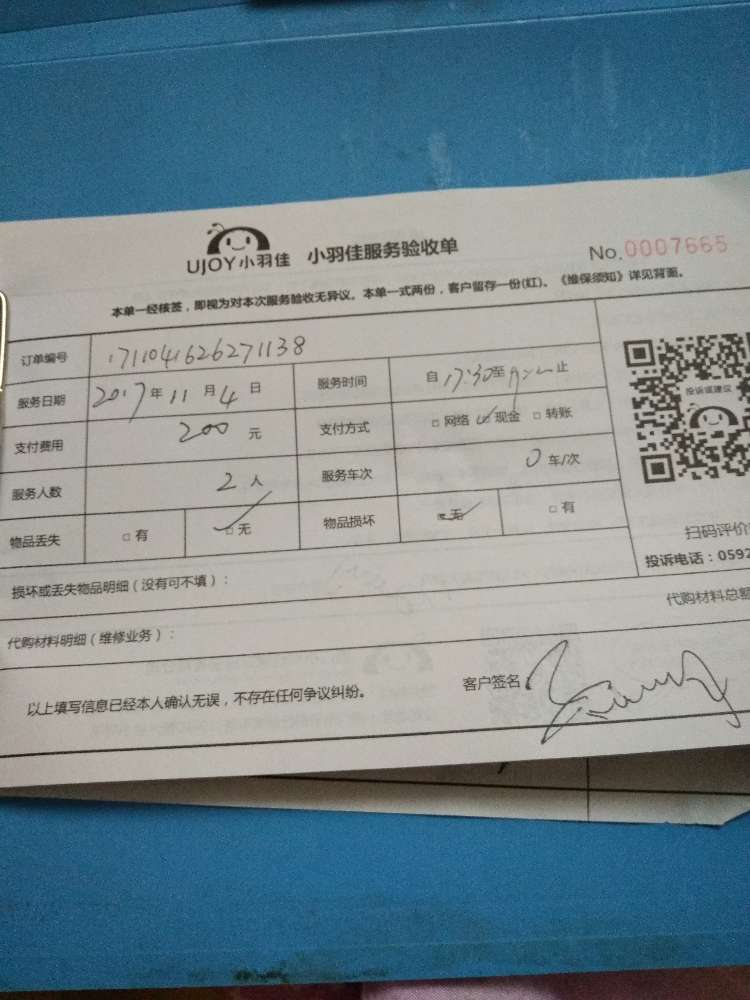 UJOY小羽佳 小羽佳服务验收单 No.0007665
本单一经核签，即视为对本次服务验收无异议。本单一式两份，客户留存一份(红)。《维保须知》详见背面。
订单编号 1711041626271138
服务日期 2017年11月4日 服务时间 自17:30至 止
支付费用 200元 支付方式 □网络 ☑现金 □转账
服务人数 2人 服务车次 0车/次
物品丢失 □有 ☑无 物品损坏 ☑无 □有
投诉或建议
扫码评价
投诉电话：0592
损坏或丢失物品明细（没有可不填）：
代购材料明细（维修业务）： 代购材料总额
以上填写信息已经本人确认无误，不存在任何争议纠纷。 客户签名